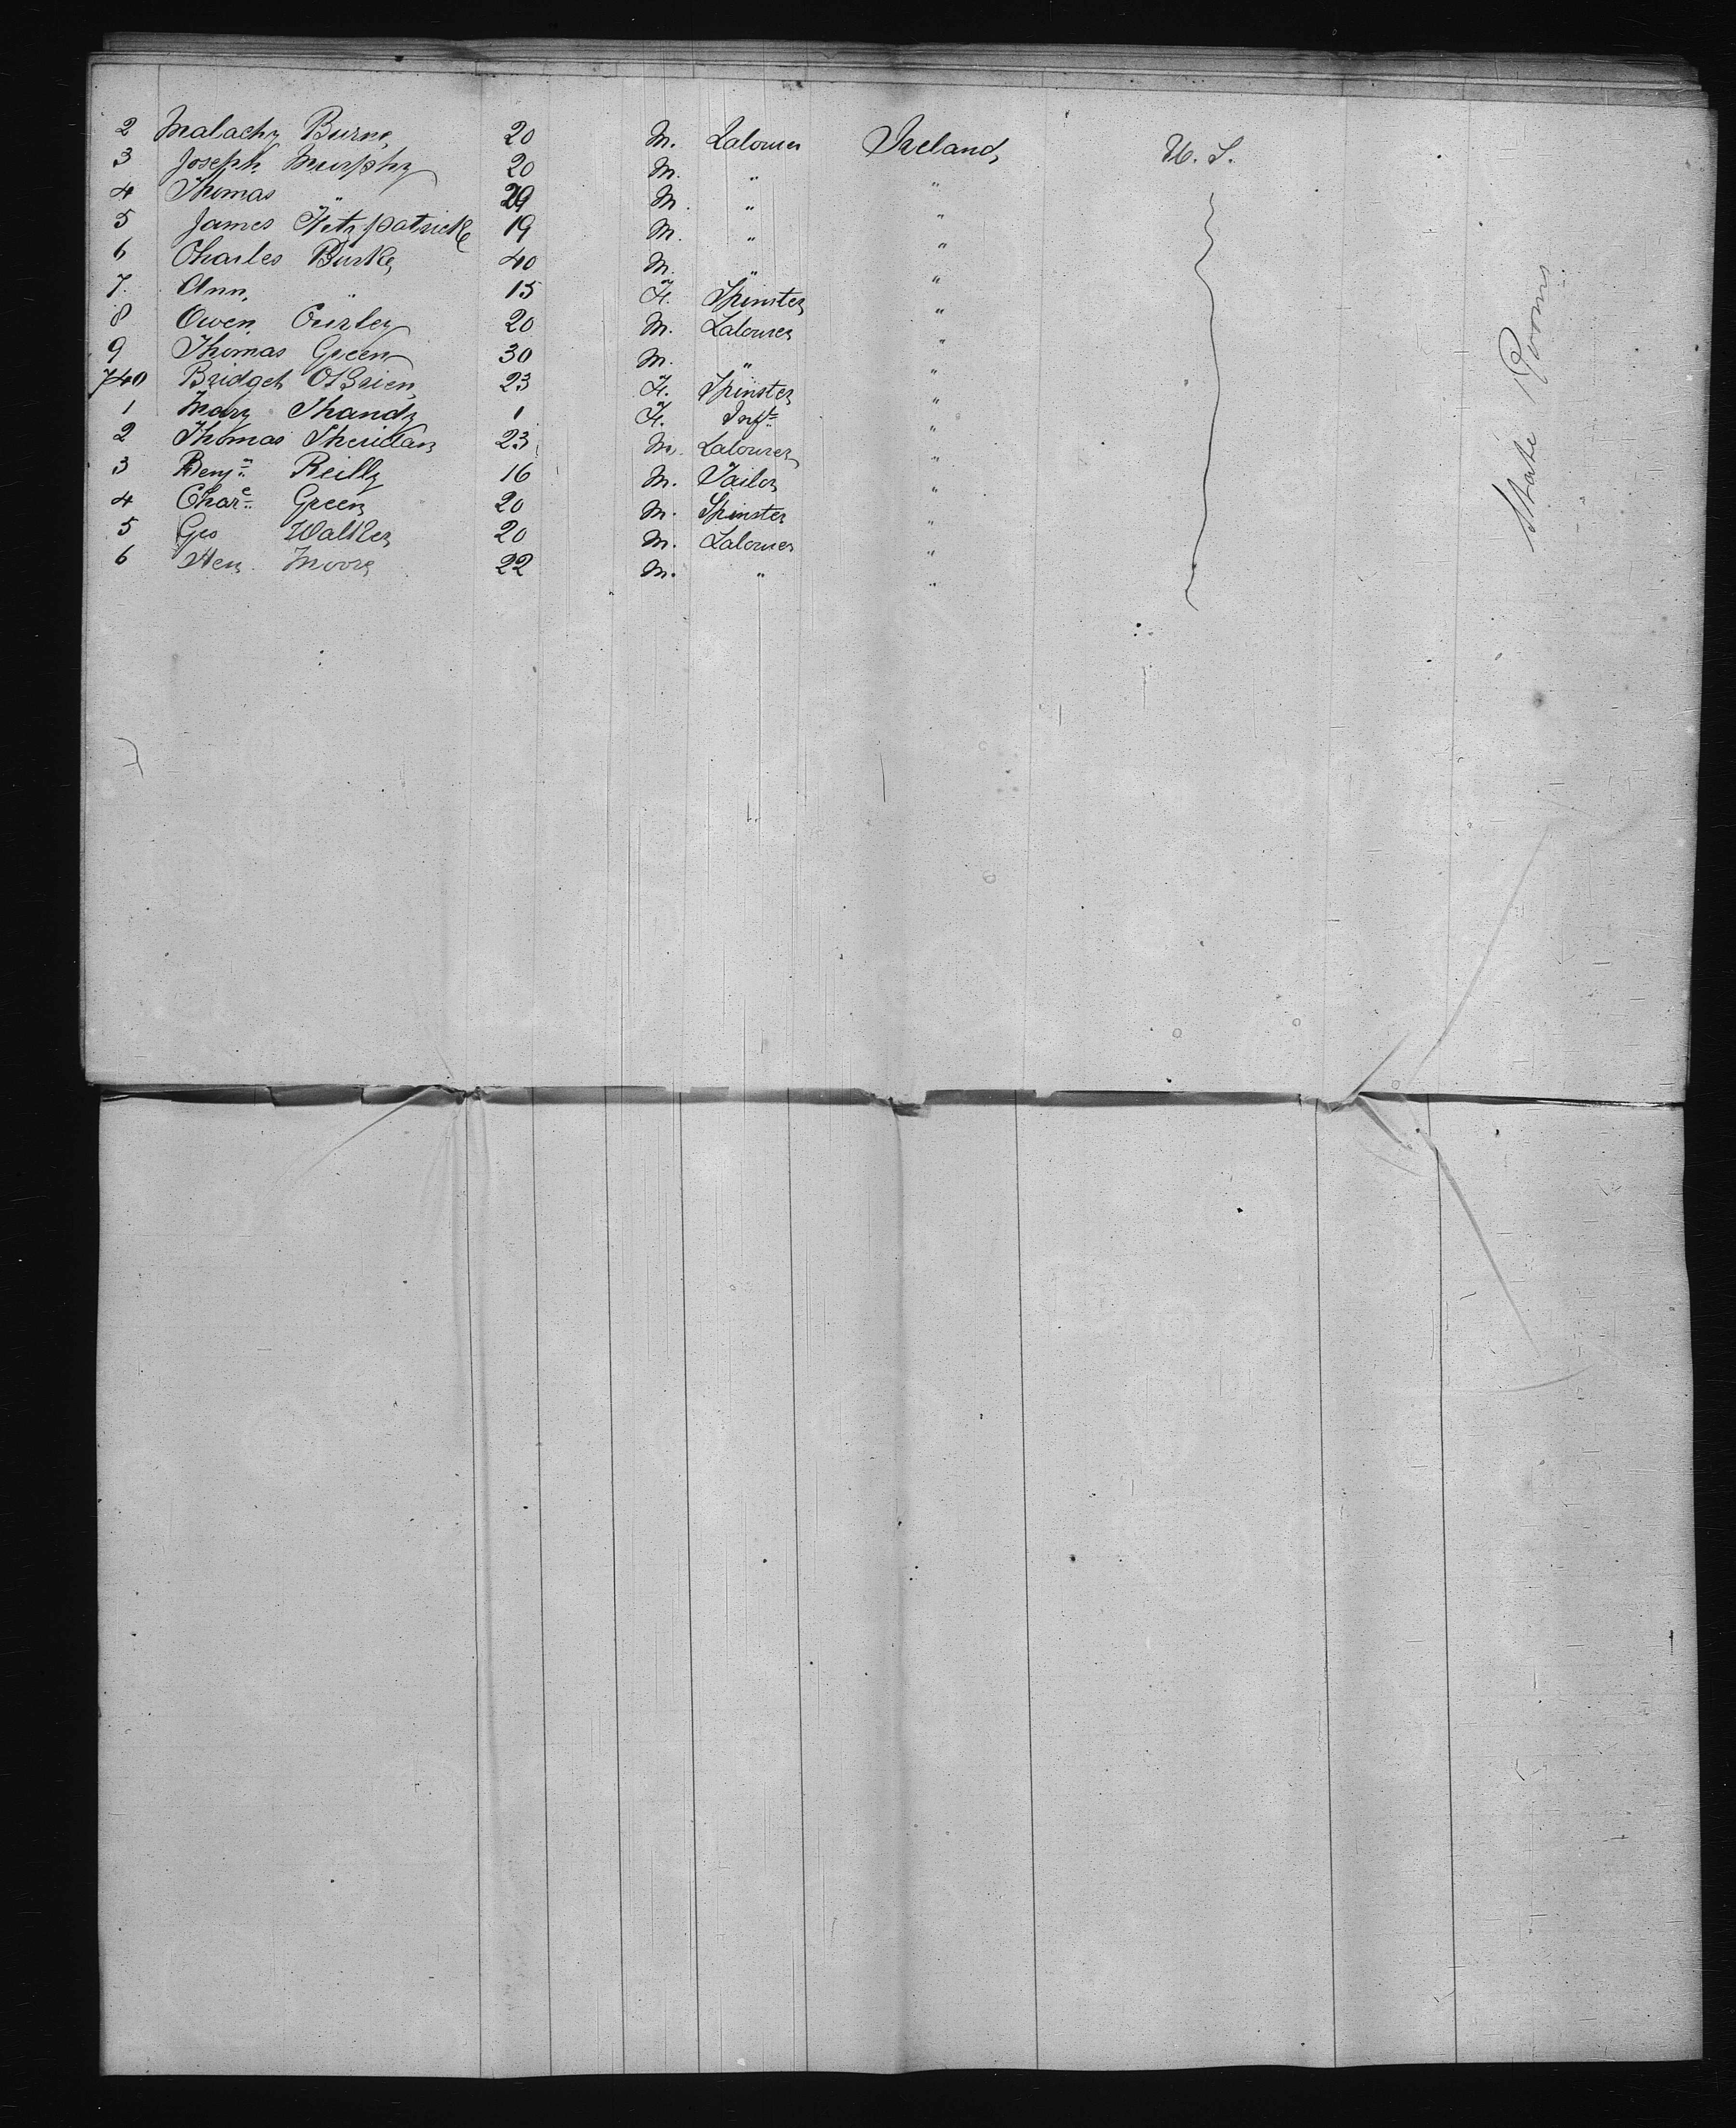 2 Malachy Burne 20 M. Labourer Ireland U. S.
3 Joseph Murphy 20 M. " "
4 Thomas " 29 M. " "
5 James Fitzpatrick 19 M. " "
6 Charles Burke 40 M. " "
7 Ann " 15 F. Spinster "
8 Owen Curley 20 M. Labourer "
9 Thomas Green 30 M. " "
740 Bridget O'Brien 23 F. Spinster "
1 Mary Shandy 1 F. Inft "
2 Thomas Sheridan 23 M. Labourer "
3 Benjn Reilly 16 M. Tailor "
4 Chare Green 20 M. Spinster "
5 Geo Walker 20 M. Labourer "
6 Hen Moore 22 M. " "
State Rooms